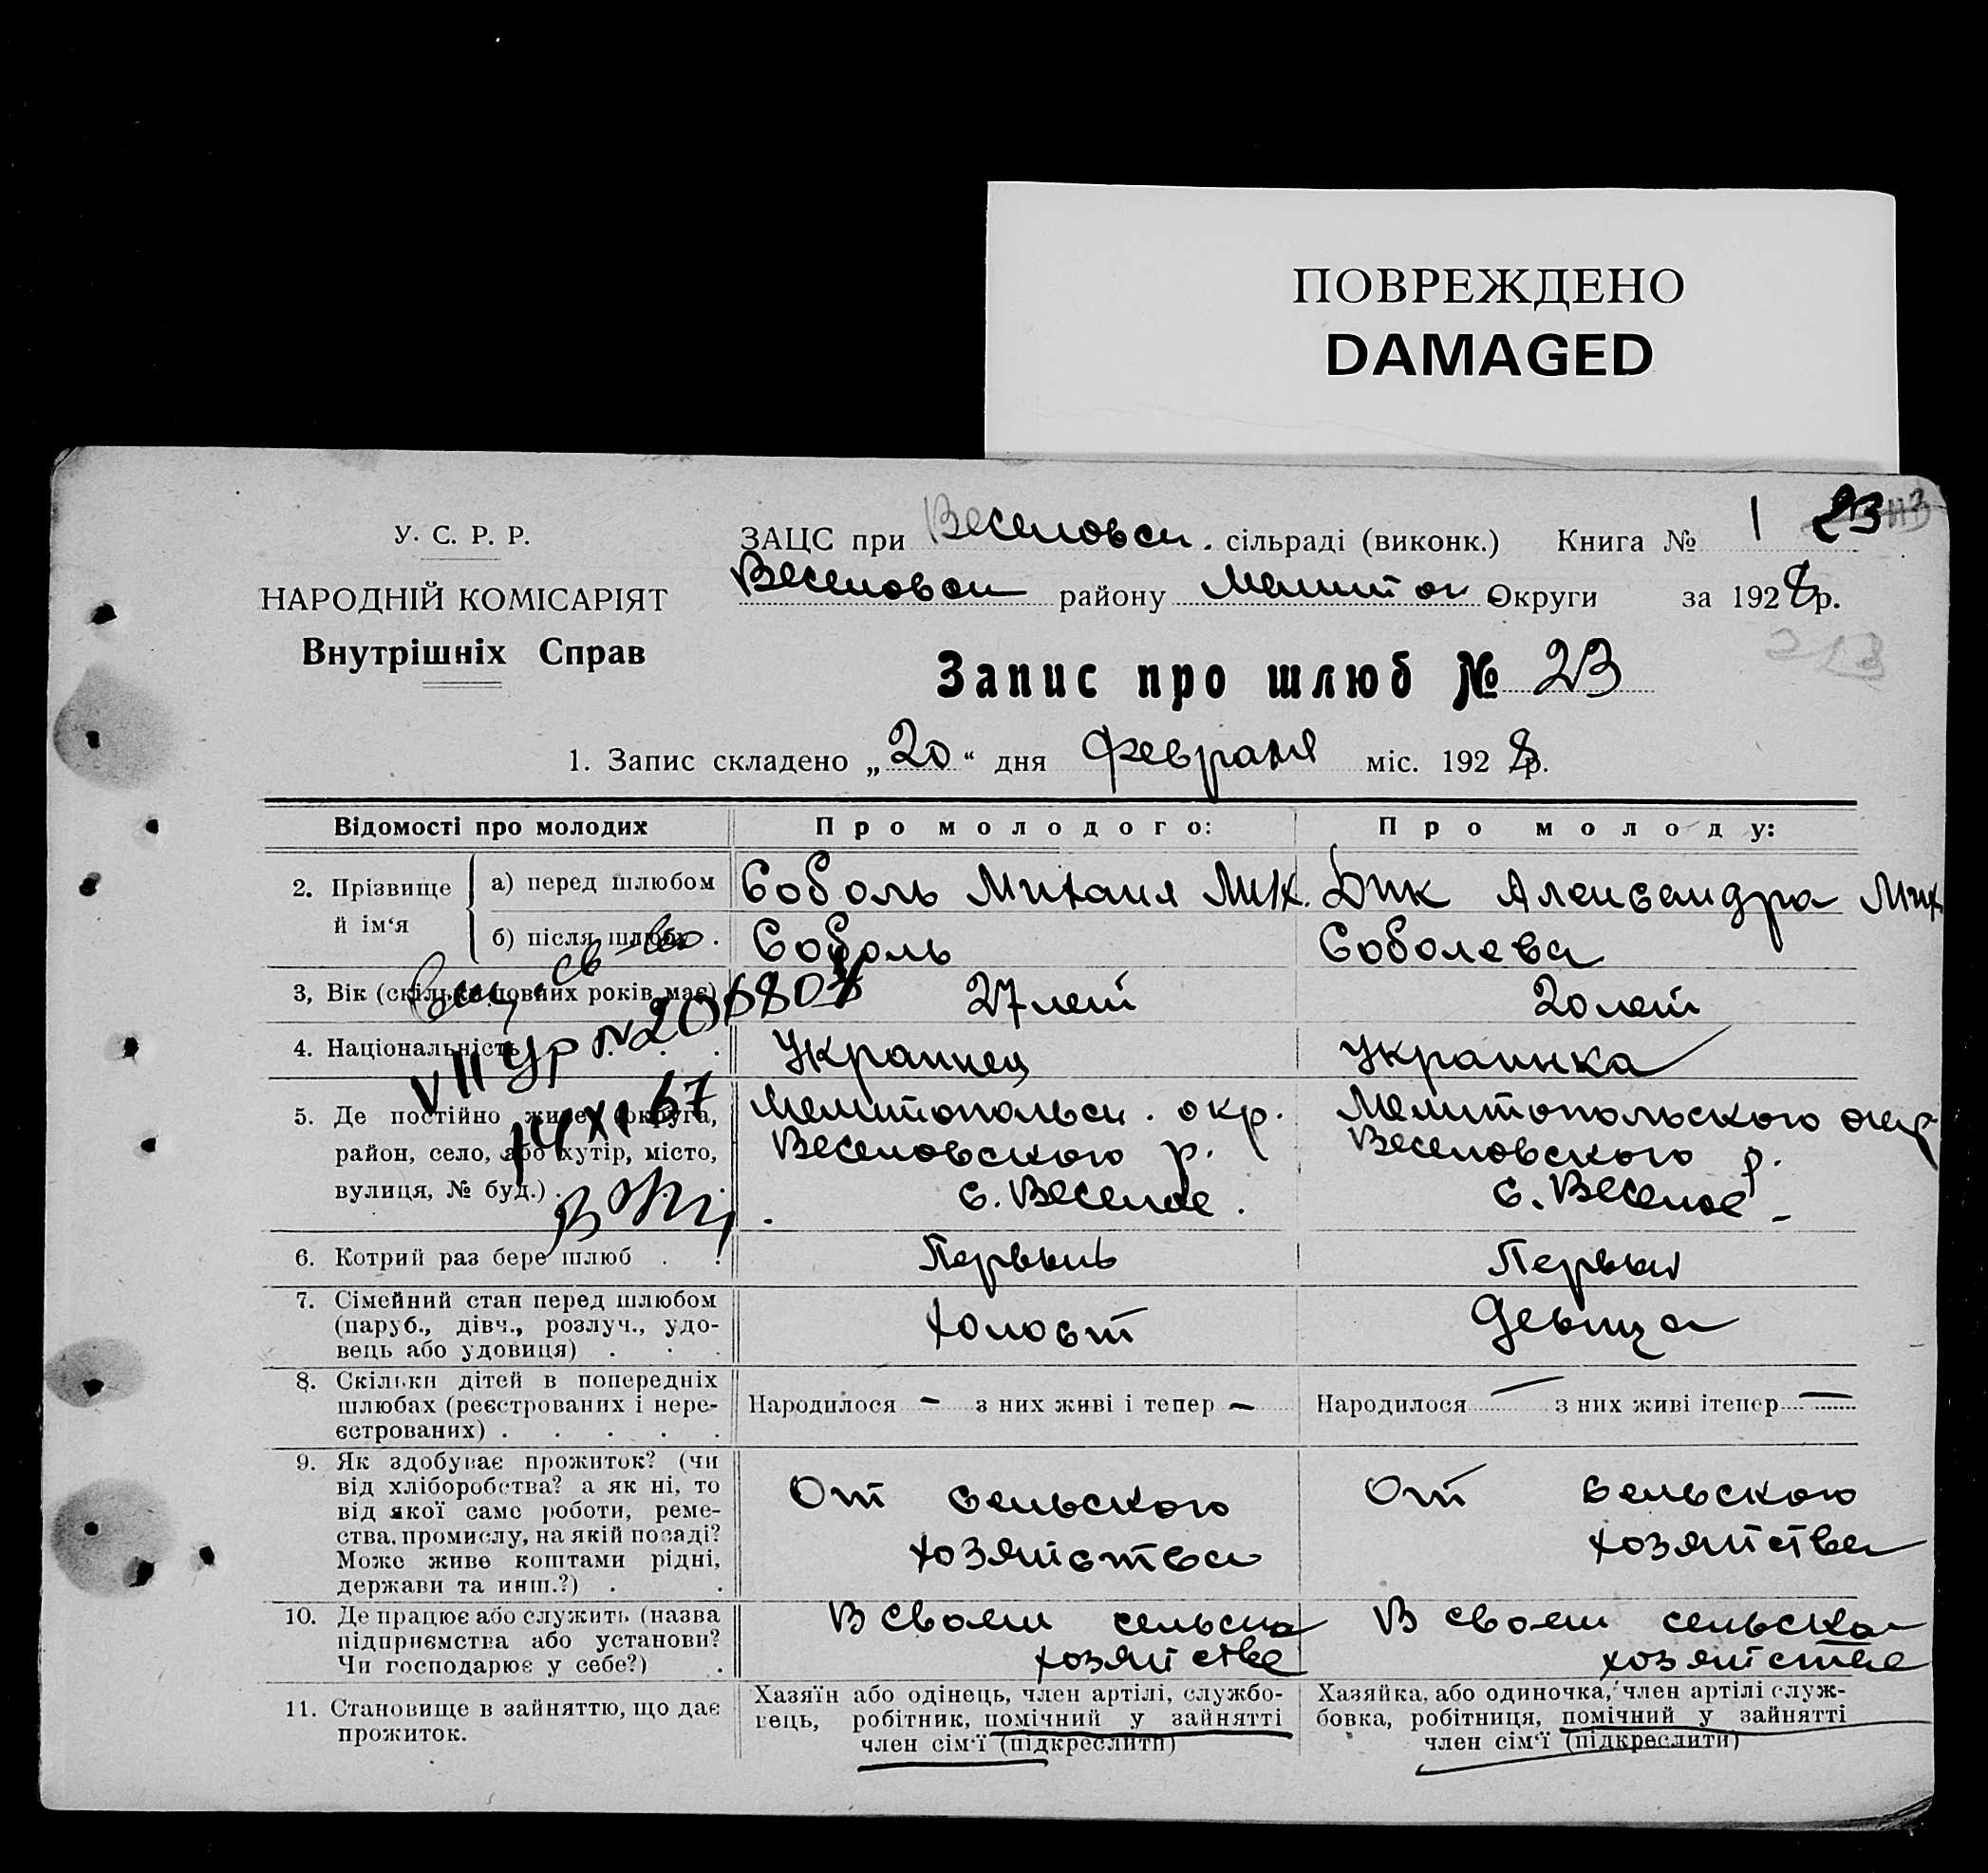 ПОВРЕЖДЕНО
DAMAGED
У. С. Р. Р.
НАРОДНІЙ КОМІСАРІЯТ
Внутрішніх Справ
ЗАЦС при Веселовск. сільраді (виконк.) Книга № 1 23
Веселовск району Мелитоп Округи за 1928 р.
213
Запис про шлюб № 23
1. Запис складено „20“ дня Февраля міс. 1928 р.
Відомості про молодих
Про молодого:
Про молоду:
2. Прізвище й ім‘я
а) перед шлюбом
Соболь Михаил Мих.
Дик Александра Мих
б) після шлюбу .
Соболь
Соболева
3, Вік (скільки повних років має)
27 лет
20 лет
4. Національність
Украинец
Украинка
5. Де постійно живе (округа,
район, село, або хутір, місто,
вулиця, № буд.) .
Мелитопольск. окр.
Веселовского р.
с. Веселое.
Мелитопольского окр
Веселовского р.
с. Веселое
св-во
VII УР № 206804
14 XI 67
6. Котрий раз бере шлюб .
Первый
Первый
7. Сімейний стан перед шлюбом
(паруб., дівч., розлуч., удо-
вець або удовиця) . . .
холост
девица
8. Скільки дітей в попередніх
шлюбах (реєстрованих і нере-
єстрованих) . . . . .
Народилося - з них живі і тепер -
Народилося - з них живі ітепер -
9. Як здобуває прожиток? (чи
від хліборобства? а як ні, то
від якої саме роботи, реме-
ства, промислу, на якій посаді?
Може живе коштами рідні,
держави та инш.?) . .
От сельского
хозяйства
От сельского
хозяйства
10. Де працює або служить (назва
підприємства або установи?
Чи господарює у себе?) .
В своем сельска
хозяйстве
В своем сельска
хозяйстве
11. Становище в зайняттю, що дає
прожиток.
Хазяїн або одінець, член артілі, службо-
вець, робітник, помічний у зайнятті
член сім‘ї (підкреслити)
Хазяйка, або одиночка, член артілі служ-
бовка, робітниця, помічний у зайнятті
член сім‘ї (підкреслити)